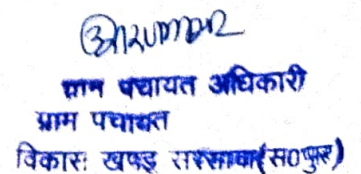 ग्राम पंचायत अधिकारी
ग्राम पंचायत
विकास खण्ड सरसावा (स०पुर)